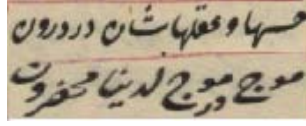 حسها و عقلهاشان در درون
موج در موج لدینا محضرون